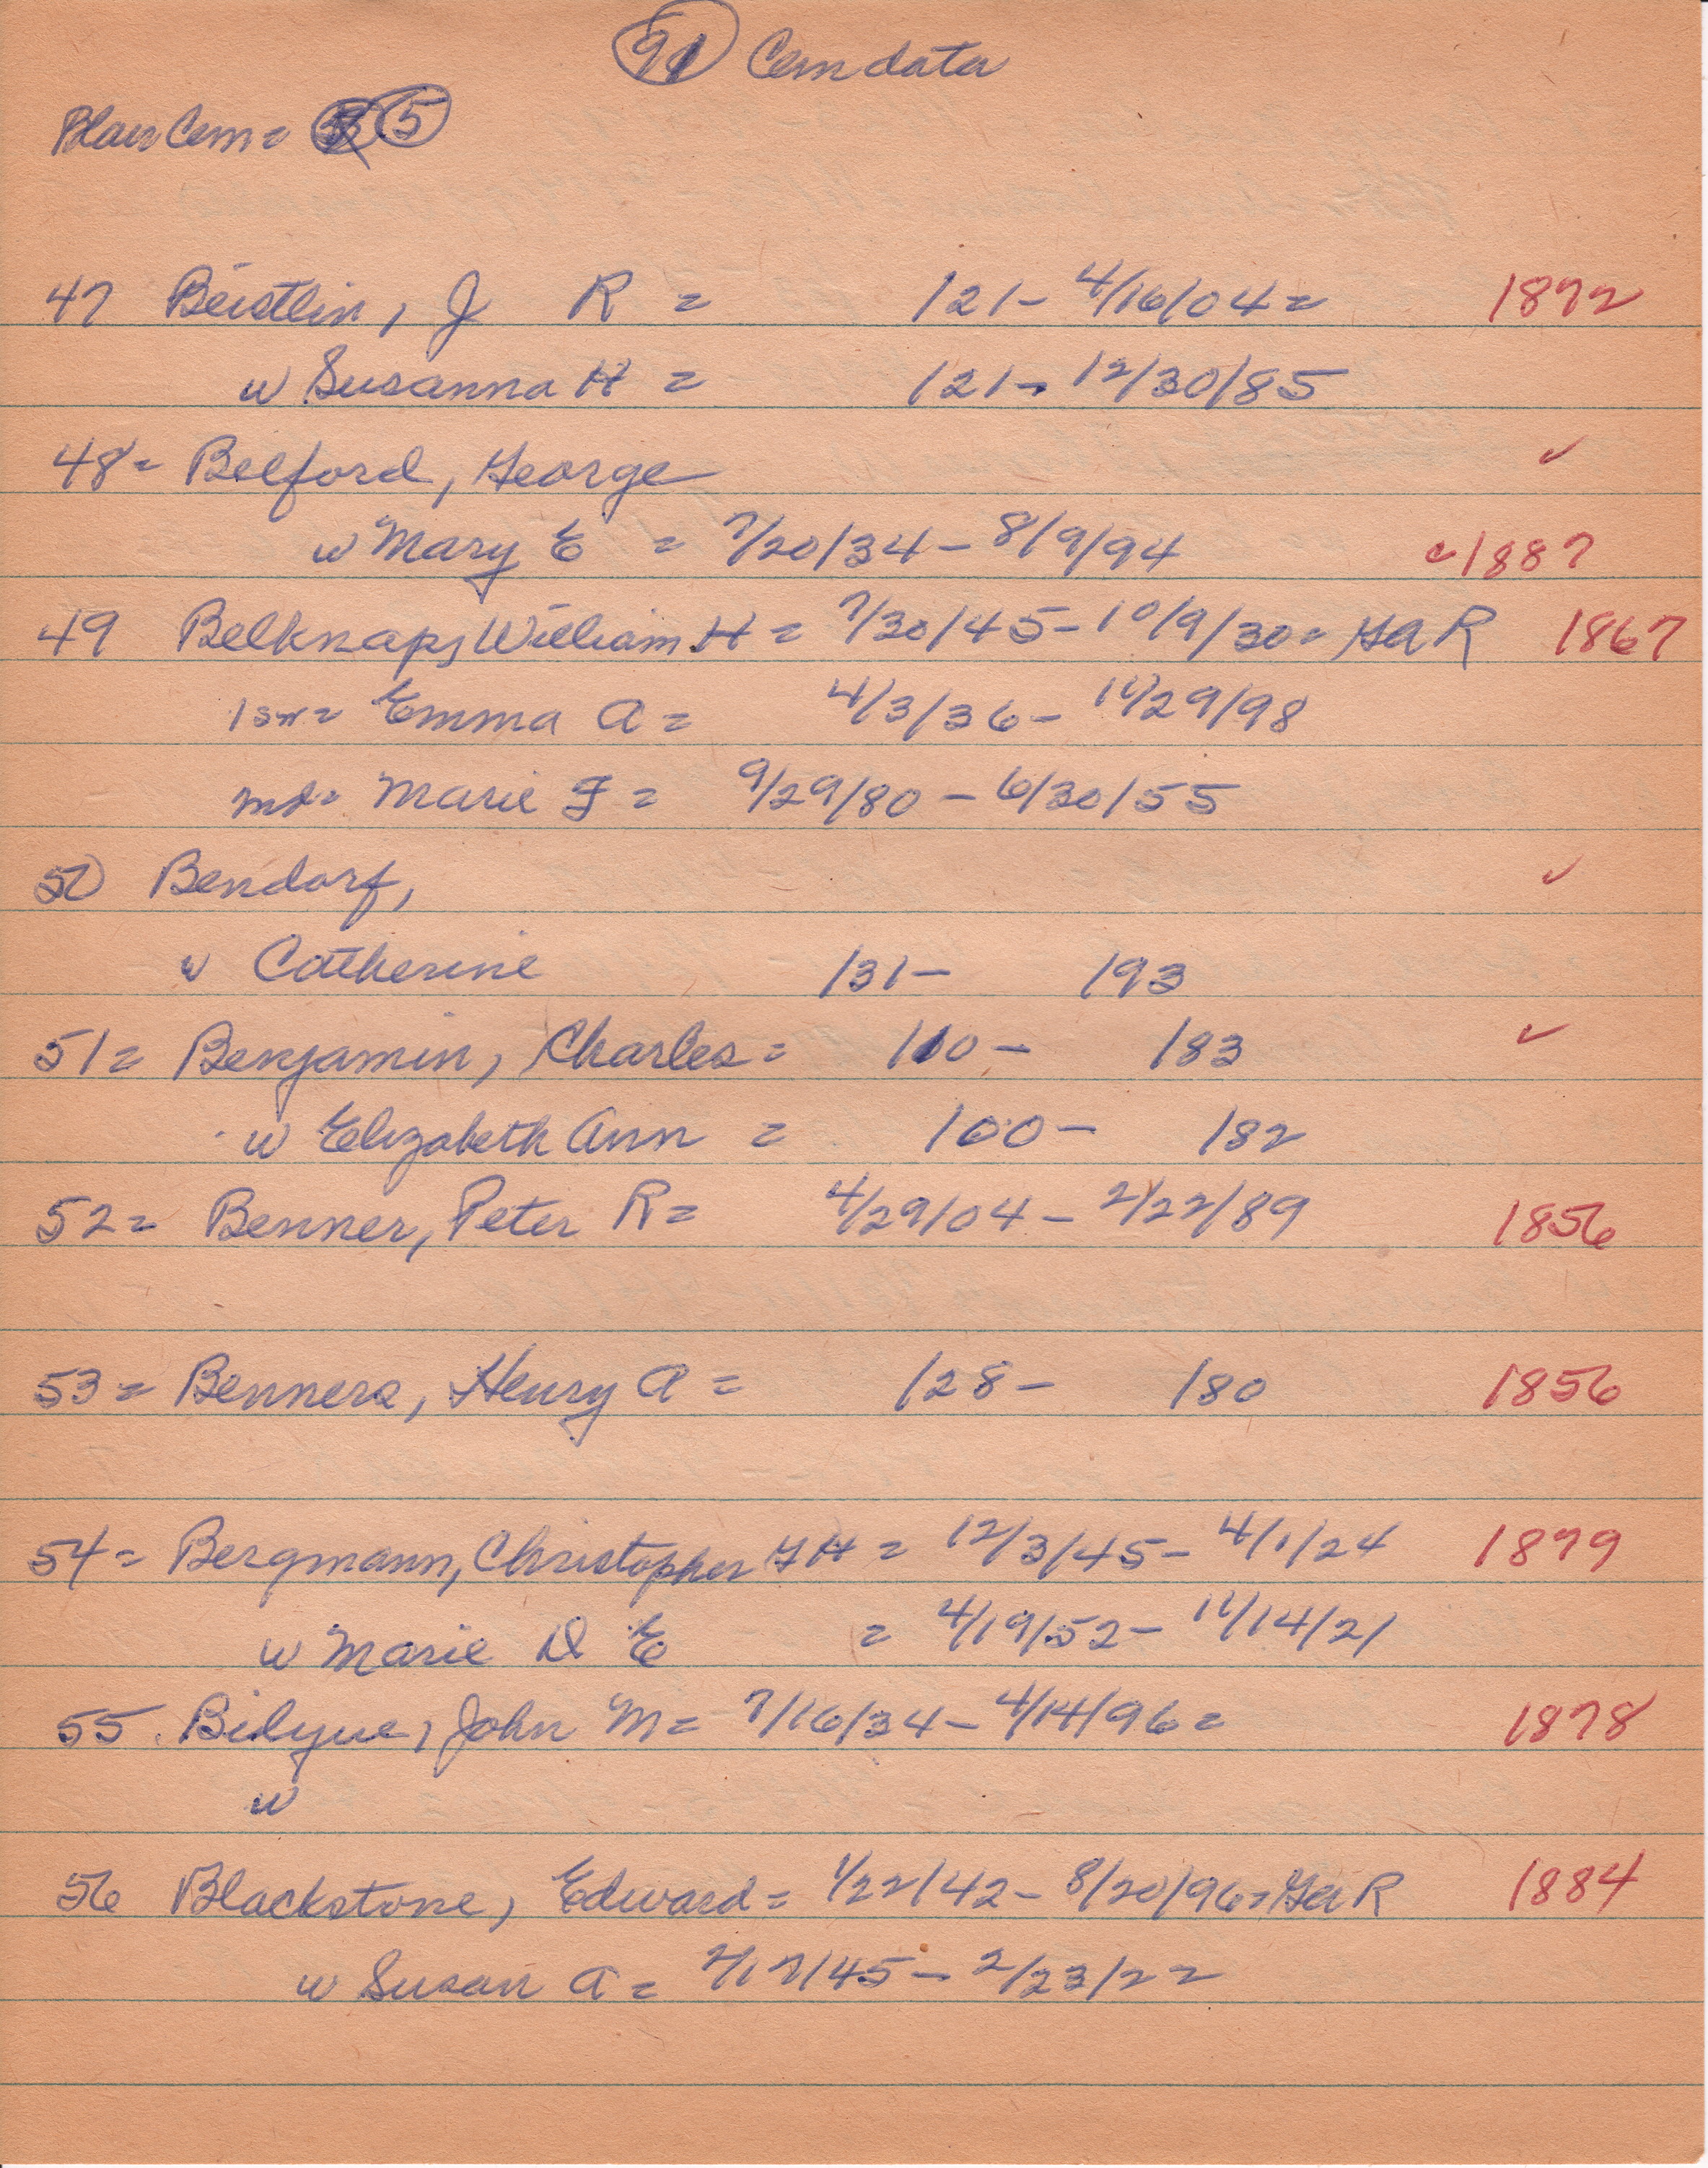 91 Cem data
Blair Cem = 5
47 Beistlin, J R = 121- 4/16/04 = 1872
w Susanna H = 121- 12/30/85
48 = Belford, George ✓
w Mary E = 7/20/34 - 8/9/94 1887
49 Belknap, William H = 7/30/45 - 10/9/30 = GAR 1867
1sw = Emma A = 4/3/36 - 11/29/98
md = Marie F = 9/29/80 - 6/30/55
50 Bendorf, ✓
w Catherine 131- 193
51 = Benjamin, Charles = 110- 183 ✓
w Elizabeth Ann = 100- 182
52 = Benner, Peter R = 4/29/04 - 2/22/89 1856
53 = Benners, Henry A = 128- 180 1856
54 = Bergmann, Christopher G H = 12/3/45 - 4/1/24 1879
w Marie D E = 4/19/52 - 11/14/21
55. Bilyue, John M = 7/16/34 - 4/14/96 = 1878
w
56 Blackstone, Edward = 1/22/42 - 8/20/96 = GAR 1884
w Susan A = 2/17/45 - 2/23/22